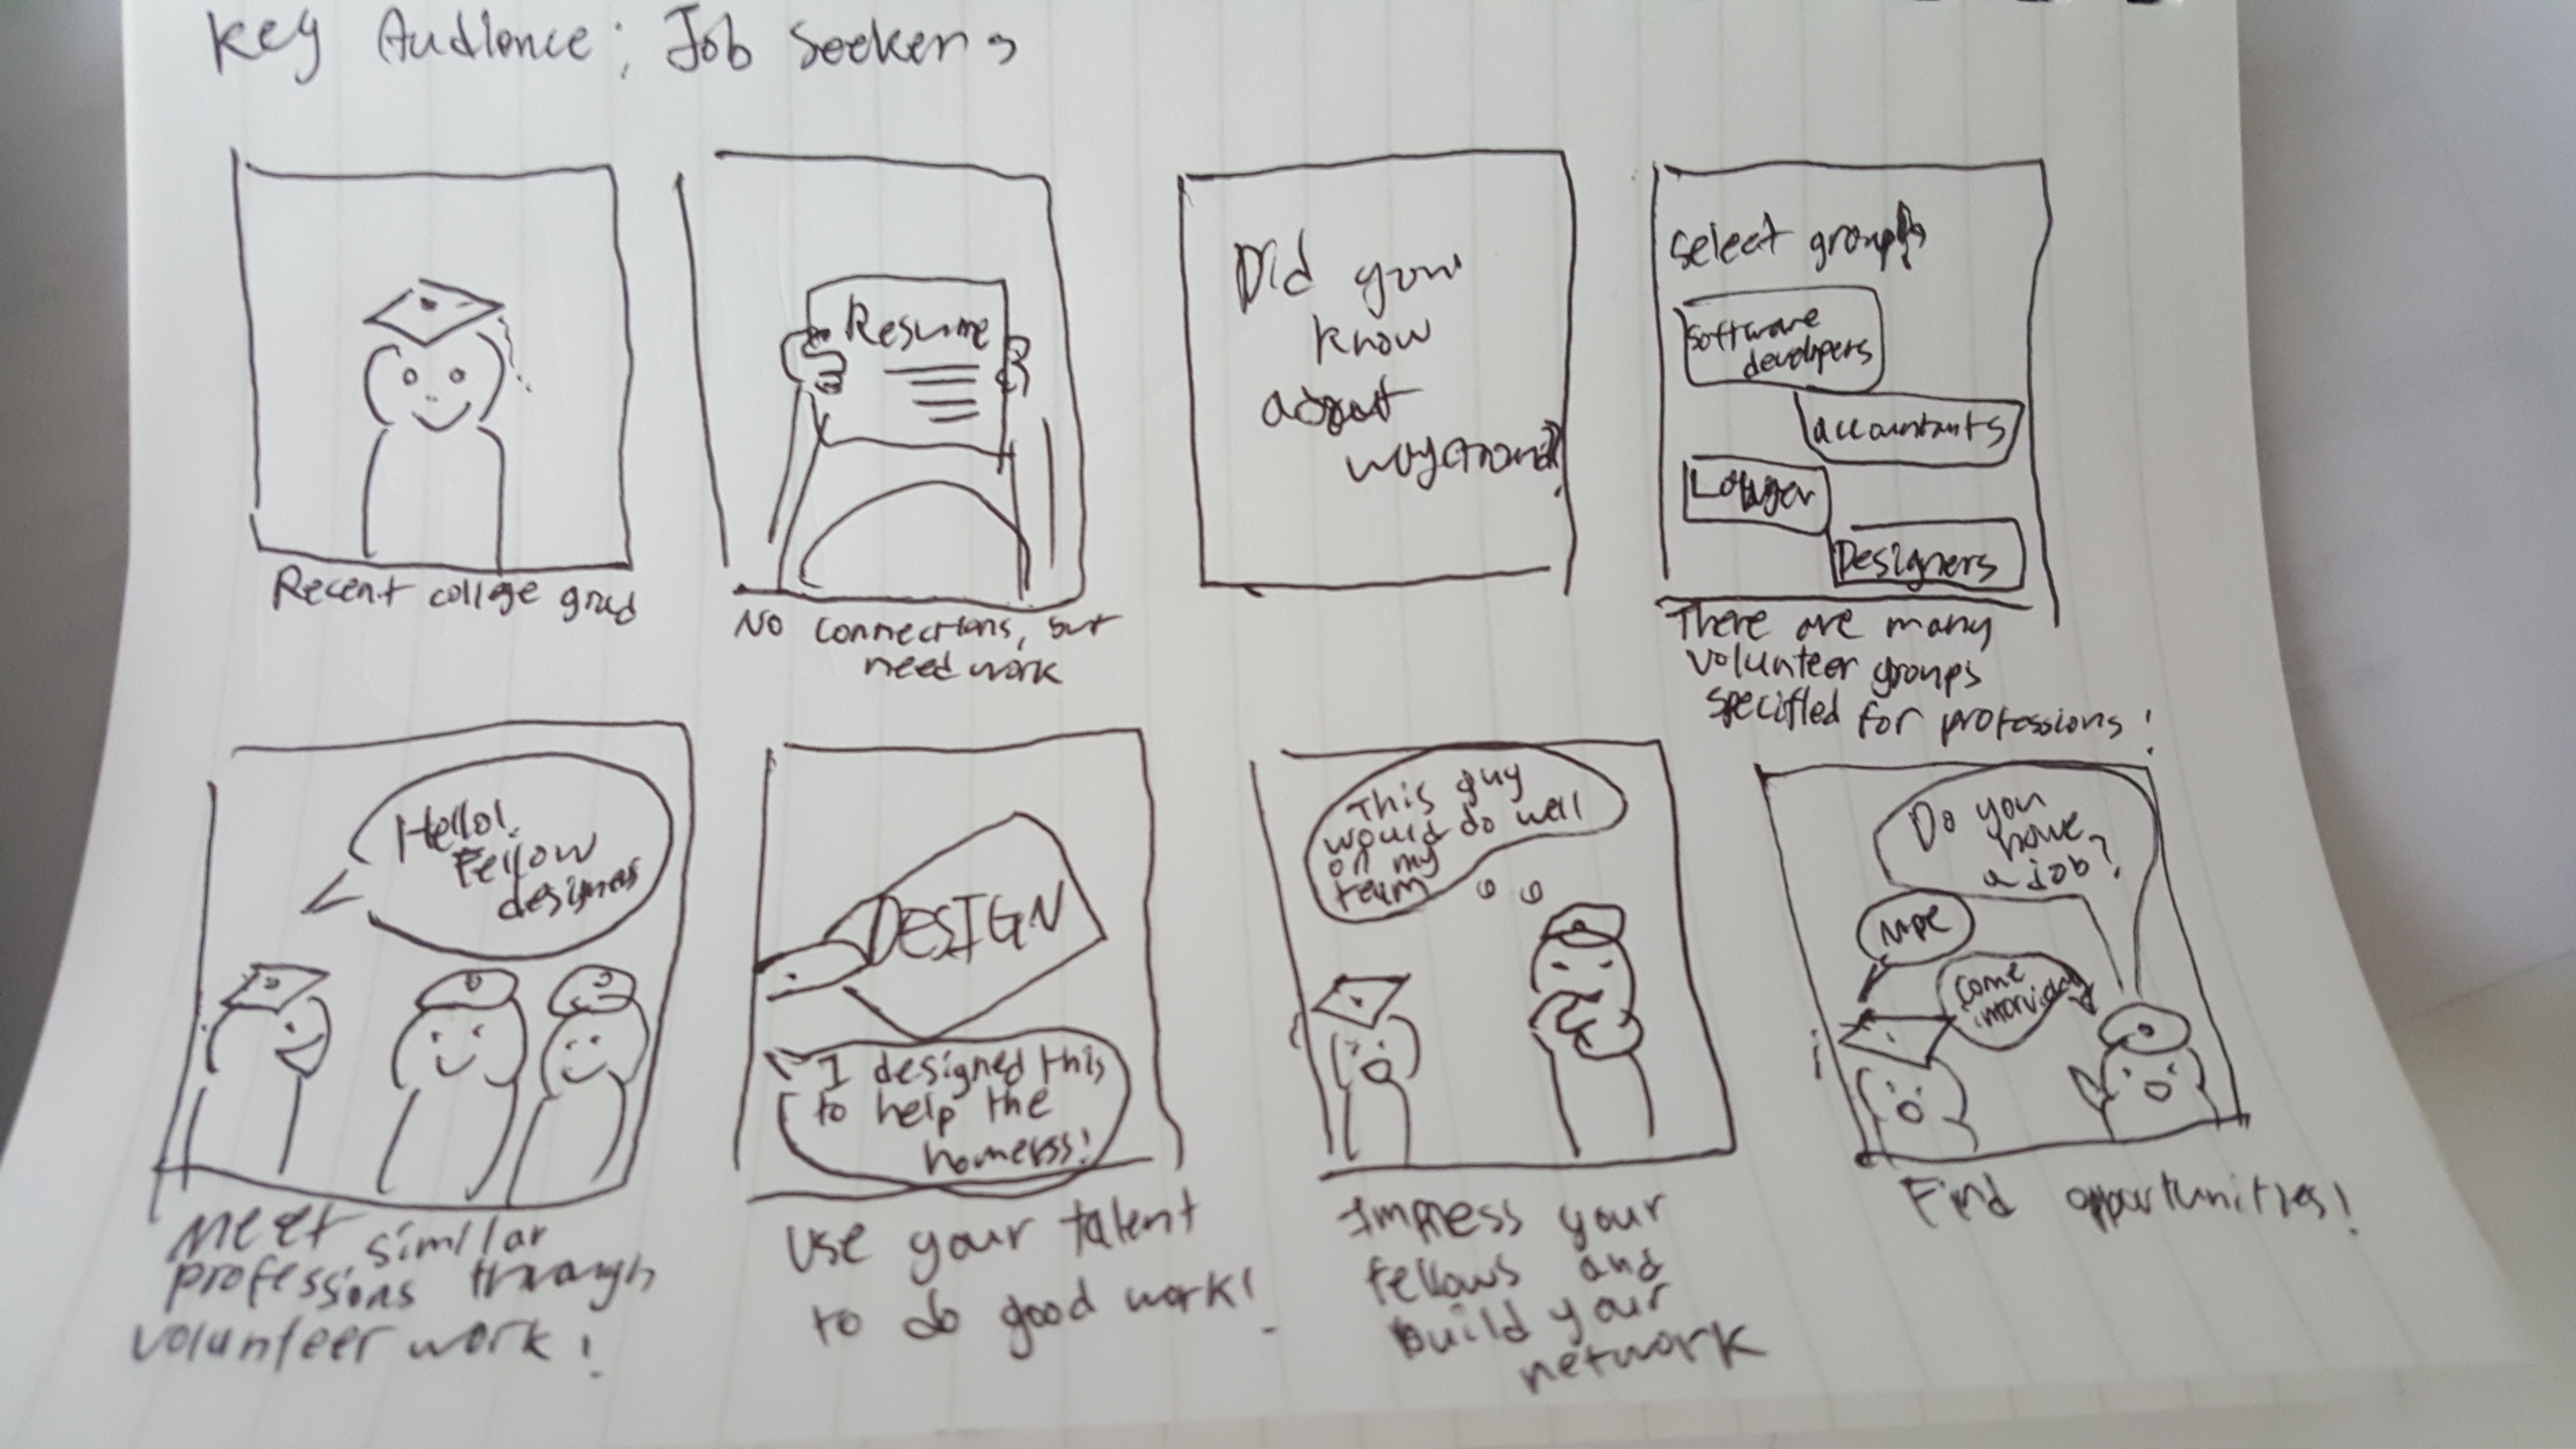 Key Audience: Job Seekers
Recent college grad
Resume
No connections, but
need work
Did you
know
about
select groups
Software
developers
accountants
Designers
There are many
volunteer groups
specified for professions!
Hello!
Fellow
designer
Meet similar
professions through
volunteer work!
DESIGN
I designed this
to help the
homeless!
Use your talent
to do good work!
This guy
would do well
on my
team
Impress your
fellows and
build your
network
Do you
have
a job?
nope
come
Find opportunities!